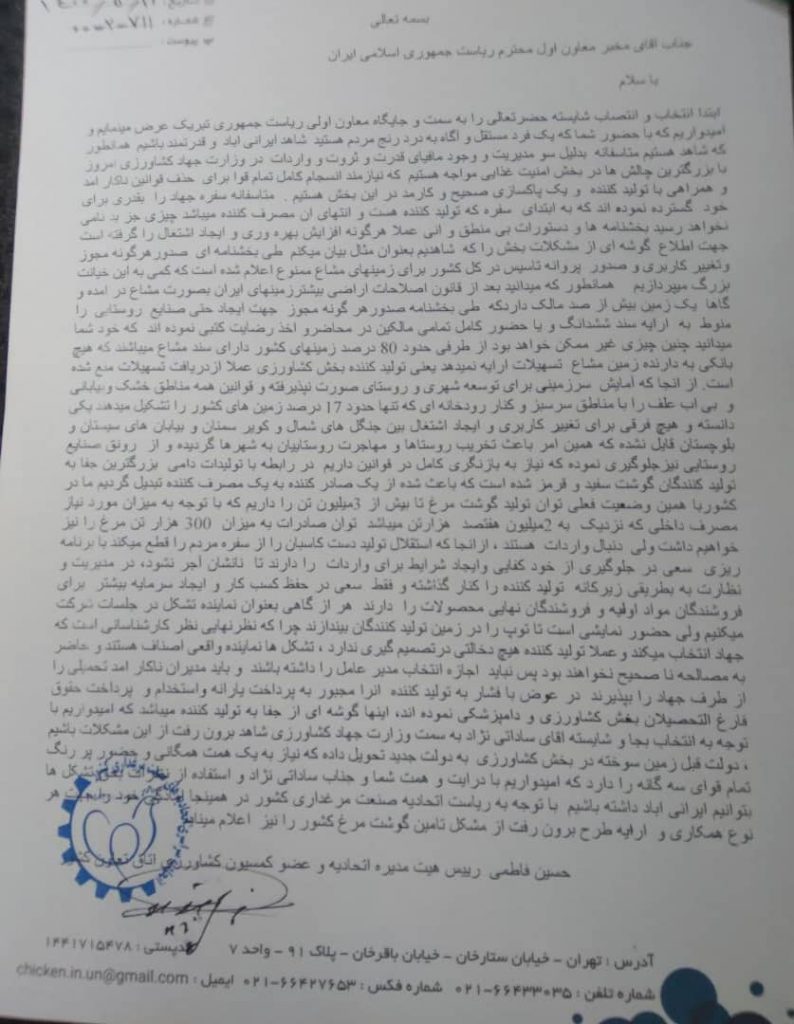 بسمه تعالی
تاریخ:
شماره: ۷۱۱-۲-۰۰۰
پیوست:
جناب اقای مخبر معاون اول محترم ریاست جمهوری اسلامی ایران
با سلام
ابتدا انتخاب و انتصاب شایسته حضرتعالی را به سمت و جایگاه معاون اولی ریاست جمهوری تبریک عرض مینمایم و
امیدواریم که با حضور شما که یک فرد مستقل و اگاه به درد رنج مردم هستید شاهد ایرانی اباد و قدرتمند باشیم همانطور
که شاهد هستیم متاسفانه بدلیل سو مدیریت و وجود مافیای قدرت و ثروت و واردات در وزارت جهاد کشاورزی امروز
با بزرگترین چالش ها در بخش امنیت غذایی مواجه هستیم که نیازمند انسجام کامل تمام قوا برای حذف قوانین ناکار امد
و همراهی با تولید کننده و یک پاکسازی صحیح و کارمد در این بخش هستیم . متاسفانه سفره جهاد را بقدری برای
خود گسترده نموده اند که به ابتدای سفره که تولید کننده هست و انتهای ان مصرف کننده میباشد چیزی جز بد نامی
نخواهد رسید بخشنامه ها و دستورات بی منطق و انی عملا هرگونه افزایش بهره وری و ایجاد اشتغال را گرفته است
جهت اطلاع گوشه ای از مشکلات بخش را که شاهدیم بعنوان مثال بیان میکنم طی بخشنامه ای صدورهرگونه مجوز
وتغییر کاربری و صدور پروانه تاسیس در کل کشور برای زمینهای مشاع ممنوع اعلام شده است که کمی به این خیانت
بزرگ میپردازیم همانطور که میدانید بعد از قانون اصلاحات اراضی بیشترزمینهای ایران بصورت مشاع در امده و
گاها یک زمین بیش از صد مالک داردکه طی بخشنامه صدورهر گونه مجوز جهت ایجاد حتی صنایع روستایی را
منوط به ارایه سند ششدانگ و یا حضور کامل تمامی مالکین در محاضرو اخذ رضایت کتبی نموده اند که خود شما
میدانید چنین چیزی غیر ممکن خواهد بود از طرفی حدود 80 درصد زمینهای کشور دارای سند مشاع میباشند که هیچ
بانکی به دارنده زمین مشاع تسهیلات ارایه نمیدهد یعنی تولید کننده بخش کشاورزی عملا ازدریافت تسهیلات منع شده
است. از انجا که آمایش سرزمینی برای توسعه شهری و روستای صورت نپذیرفته و قوانین همه مناطق خشک وبیابانی
و بی اب علف را با مناطق سرسبز و کنار رودخانه ای که تنها حدود 17 درصد زمین های کشور را تشکیل میدهند یکی
دانسته و هیچ فرقی برای تغییر کاربری و ایجاد اشتغال بین جنگل های شمال و کویر سمنان و بیابان های سیستان و
بلوچستان قایل نشده که همین امر باعث تخریب روستاها و مهاجرت روستاییان به شهرها گردیده و از رونق صنایع
روستایی نیزجلوگیری نموده که نیاز به بازنگری کامل در قوانین داریم در رابطه با تولیدات دامی بزرگترین جفا به
تولید کنندگان گوشت سفید و قرمز شده است که باعث شده از یک صادر کننده به یک مصرف کننده تبدیل گردیم ما در
کشوربا همین وضعیت فعلی توان تولید گوشت مرغ تا بیش از 3میلیون تن را داریم که با توجه به میزان مورد نیاز
مصرف داخلی که نزدیک به 2میلیون هفتصد هزارتن میباشد توان صادرات به میزان 300 هزار تن مرغ را نیز
خواهیم داشت ولی دنبال واردات هستند ، ازانجا که استقلال تولید دست کاسبان را از سفره مردم را قطع میکند با برنامه
ریزی سعی در جلوگیری از خود کفایی وایجاد شرایط برای واردات را دارند تا نانشان آجر نشود، در مدیریت و
نظارت به بطریقی زیرکانه تولید کننده را کنار گذاشته و فقط سعی در حفظ کسب کار و ایجاد سرمایه بیشتر برای
فروشندگان مواد اولیه و فروشندگان نهایی محصولات را دارند هر از گاهی بعنوان نماینده تشکل در جلسات شرکت
میکنیم ولی حضور نمایشی است تا توپ را در زمین تولید کنندگان بیندازند چرا که نظرنهایی نظر کارشناسانی است که
جهاد انتخاب میکند و عملا تولید کننده هیچ دخالتی درتصمیم گیری ندارد ، تشکل ها نماینده واقعی اصناف هستند و حاضر
به مصالحه نا صحیح نخواهند بود پس نباید اجازه انتخاب مدیر عامل را داشته باشند و باید مدیران ناکار امد تحمیلی را
از طرف جهاد را بپذیرند در عوض با فشار به تولید کننده انرا مجبور به پرداخت یارانه واستخدام و پرداخت حقوق
فارغ التحصیلان بخش کشاورزی و دامپزشکی نموده اند، اینها گوشه ای از جفا به تولید کننده میباشد که امیدواریم با
توجه به انتخاب بجا و شایسته اقای ساداتی نژاد به سمت وزارت جهاد کشاورزی شاهد برون رفت از این مشکلات باشیم
، دولت قبل زمین سوخته در بخش کشاورزی به دولت جدید تحویل داده که نیاز به یک همت همگانی و حضور پر رنگ
تمام قوای سه گانه را دارد که امیدواریم با درایت و همت شما و جناب ساداتی نژاد و استفاده از نظرات تشکل ها
بتوانیم ایرانی اباد داشته باشیم با توجه به ریاست اتحادیه صنعت مرغداری کشور در همینجا خود را جهت هر
نوع همکاری و ارایه طرح برون رفت از مشکل تامین گوشت مرغ کشور را نیز اعلام
حسین فاطمی رییس هیت مدیره اتحادیه و عضو کمسیون کشاورزی اتاق تعاون
آدرس : تهران - خیابان ستارخان - خیابان باقرخان - پلاک ۹۱ - واحد ۷ کدپستی : ۱۴۴۱۷۱۵۴۷۸
شماره تلفن : ۶۶۴۳۳۰۳۵-۰۲۱ شماره فکس : ۶۶۴۲۷۶۵۳-۰۲۱ ایمیل : chicken.in.un@gmail.com